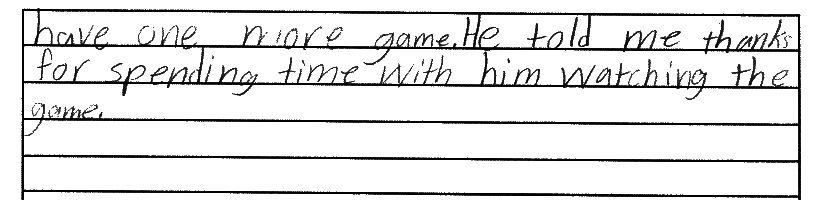 have one more game.He told me thanks
for spending time with him watching the
game.